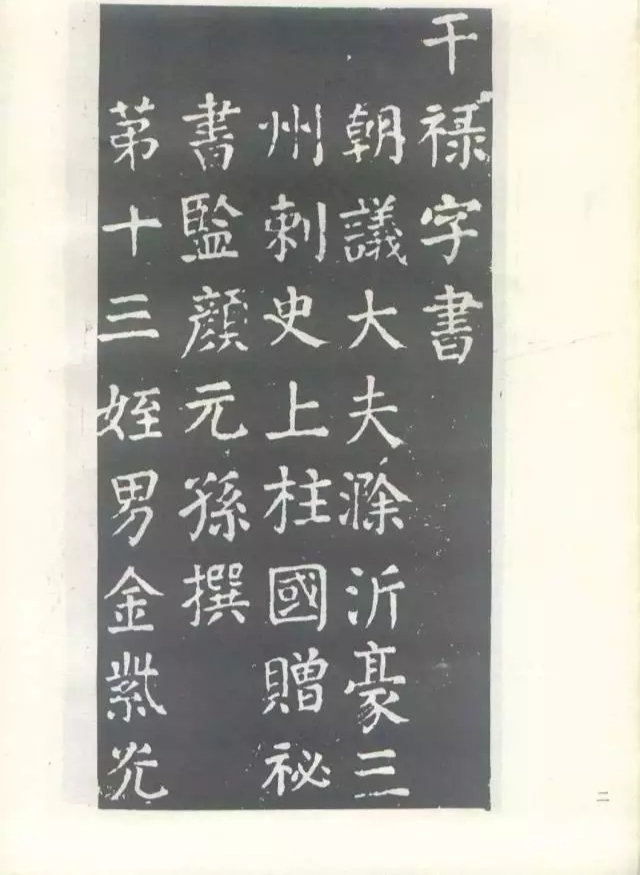 干祿字書
朝議大夫滁沂豪三
州刺史上柱國贈祕
書監顏元孫撰
第十三姪男金紫光
二